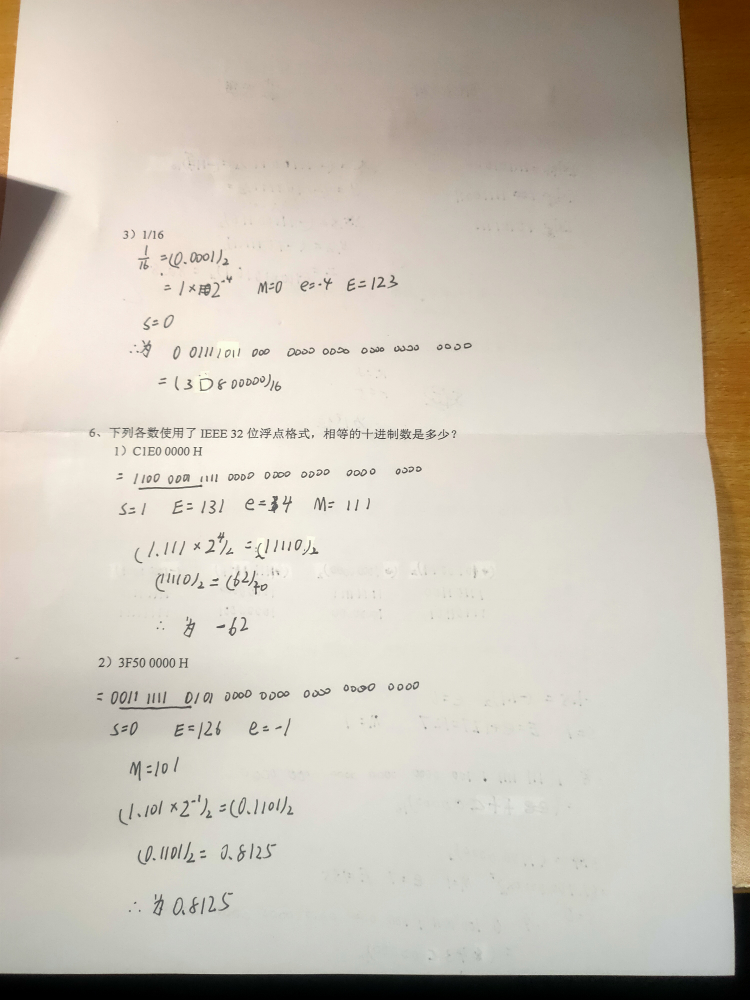 3）1/16
1/16 = (0.0001)₂
= 1×2⁻⁴ M=0 e=-4 E=123
S=0
∴为 0 01111011 000 0000 0000 0000 0000 0000
= (3D800000)₁₆
6、下列各数使用了 IEEE 32 位浮点格式，相等的十进制数是多少？
1）C1E0 0000 H
= 1100 0001 1111 0000 0000 0000 0000 0000
S=1 E=131 e=4 M=111
(1.111×2⁴)₂ = (11110)₂
(11110)₂ = (62)₁₀
∴ 为 -62
2）3F50 0000 H
= 0011 1111 0101 0000 0000 0000 0000 0000
S=0 E=126 e=-1
M=101
(1.101×2⁻¹)₂ = (0.1101)₂
(0.1101)₂ = 0.8125
∴ 为 0.8125